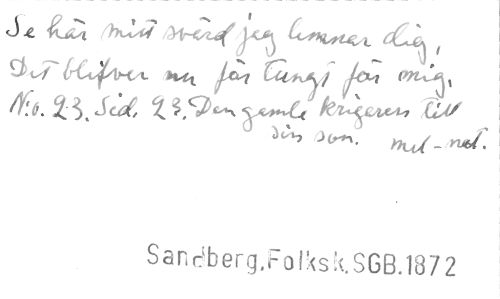 Se här mitt svärd jag lemnar dig,
Det blifver nu för tungt för mig.
N:o. 23. Sid. 23. Den gamle krigaren till
sin son. mel-not.
Sandberg.Folksk.SGB.1872